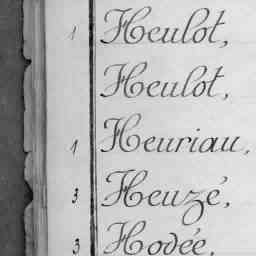 1 Heulot,
Heulot,
1 Heuriau,
3 Heuzé,
3 Hodée,